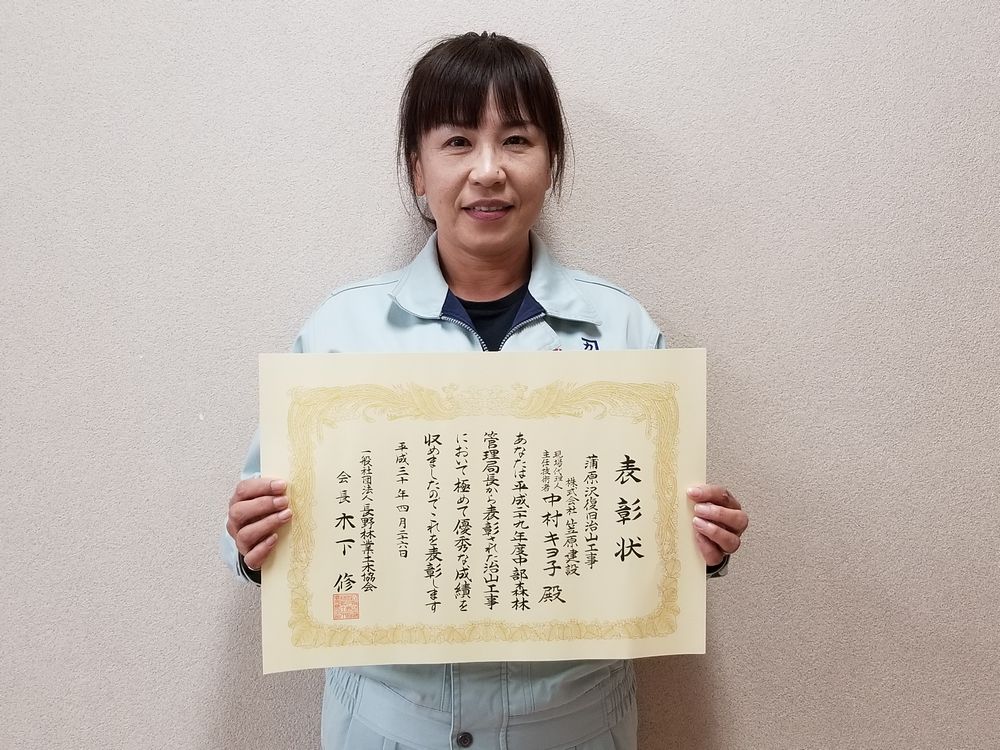 表彰状
蒲原沢復旧治山工事
株式会社 笠原建設
現場代理人
主任技術者
中村キヨ子 殿
あなたは平成二十九年度中部森林
管理局長から表彰された治山工事
において極めて優秀な成績を
収めましたのでこれを表彰します
平成三十年四月二十六日
一般社団法人 長野林業土木協会
会長 木下 修